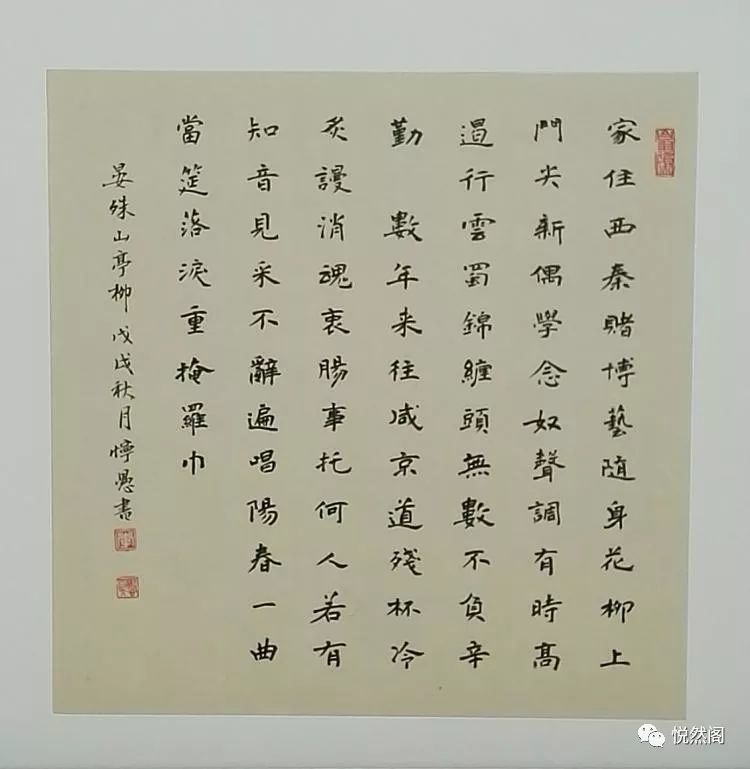 家住西秦賭博藝隨身花柳上
門尖新偶學念奴聲調有時高
遏行雲蜀錦纏頭無數不負辛
勤 數年来往咸京道殘杯冷
炙謾消魂衷腸事托何人若有
知音見采不辭遍唱陽春一曲
當筵落淚重掩羅巾
晏殊山亭柳 戊戌秋月懧愚書
悦然阁